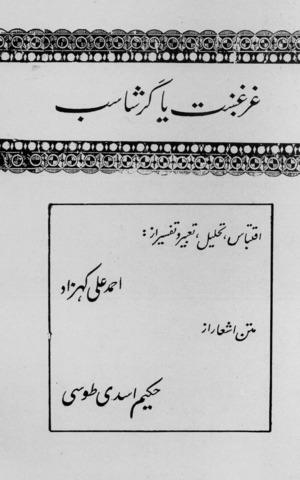 غرغښت یا گرشاسب
اقتباس، تحلیل، تعبیر و تفسیر از:
احمد علی کهزاد
متن اشعار از
حکیم اسدی طوسی